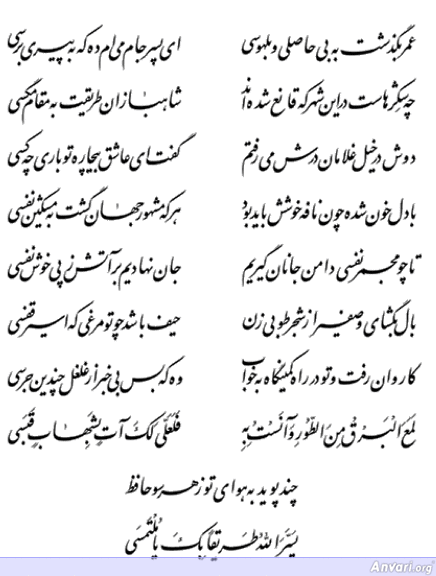 عمر بگذشت به بی حاصلی و بلهوسی ای پسر جام می ام ده که به پیری برسی
چه شکرهاست در این شهر که قانع شده اند شاهبازان طریقت به مقام مگسی
دوش در خیل غلامان درش می رفتم گفت ای عاشق بیچاره تو باری چه کسی
با دل خون شده چون نافه خوشش باید بود هر که مشهور جهان گشت به مشکین نفسی
تا چو مجمر نفسی دامن جانان گیریم جان نهادیم بر آتش ز پی خوش نفسی
بال بگشای و صفیر از شجر طوبی زن حیف باشد چو تو مرغی که اسیر قفسی
کاروان رفت و تو در راه کمینگاه به خواب وه که بس بی خبر از غلغل چندین جرسی
لَمَعَ الْبَرْقُ مِنَ الطّورِ وَ آنَسْتُ بِهِ فَلَعَلّی لَکَ آتٍ بِشَهابٍ قَبَسی
چند پوید به هوای تو ز هر سو حافظ
یَسَّرَ اللهُ طَریقاً بِکَ یا مُلْتَمَسی
Anvari.org